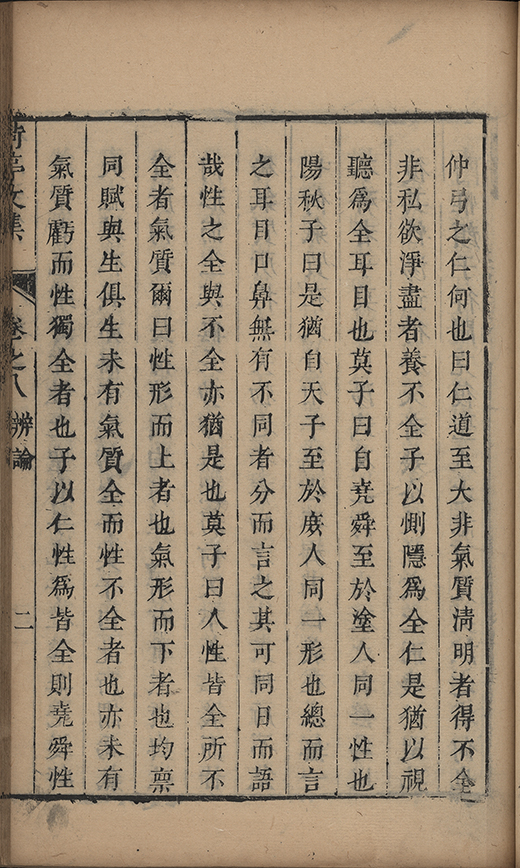 仲弓之仁何也曰仁道至大非氣質淸明者得不全
非私欲淨盡者養不全子以惻隱爲全仁是猶以視
聽爲全耳目也莫子曰自堯舜至於塗人同一性也
陽秋子曰是猶自天子至於庻人同一形也總而言
之耳目口鼻無有不同者分而言之其可同日而語
哉性之全與不全亦猶是也莫子曰人性皆全所不
全者氣質爾曰性形而上者也氣形而下者也均禀
同賦與生俱生未有氣質全而性不全者也亦未有
氣質虧而性獨全者也子以仁性爲皆全則堯舜性
文集
卷之八
辨論
二